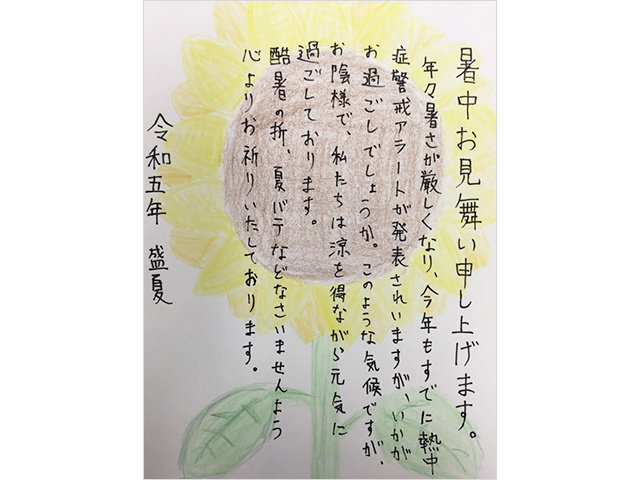 暑中お見舞い申し上げます。
年々暑さが厳しくなり、今年もすでに熱中
症警戒アラートが発表されいますが、いかが
お過ごしでしょうか。このような気候ですが、
お陰様で、私たちは涼を得ながら元気に
過ごしております。
酷暑の折、夏バテなどなさいませんよう
心よりお祈りいたしております。
令和五年 盛夏